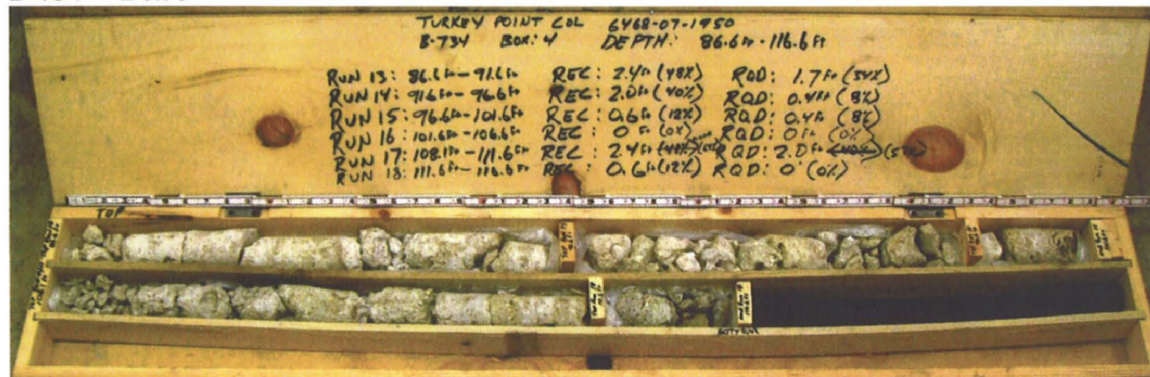 TURKEY POINT COL 6468-07-1950
B-734 BOX: 4 DEPTH: 86.6 Ft - 116.6 Ft
RUN 13: 86.6 Ft - 91.6 Ft REC: 2.4 Ft (48%) RQD: 1.7 Ft (34%)
RUN 14: 91.6 Ft - 96.6 Ft REC: 2.0 Ft (40%) RQD: 0.4 Ft (8%)
RUN 15: 96.6 Ft - 101.6 Ft REC: 0.6 Ft (12%) RQD: 0.4 Ft (8%)
RUN 16: 101.6 Ft - 106.6 Ft REC: 0 Ft (0%) RQD: 0 Ft (0%)
RUN 17: 108.1 Ft - 111.6 Ft REC: 2.4 Ft RQD: 2.0 Ft (40%)
RUN 18: 111.6 Ft - 116.6 Ft REC: 0.6 Ft (12%) RQD: 0' (0%)
TOP
BOTTOM